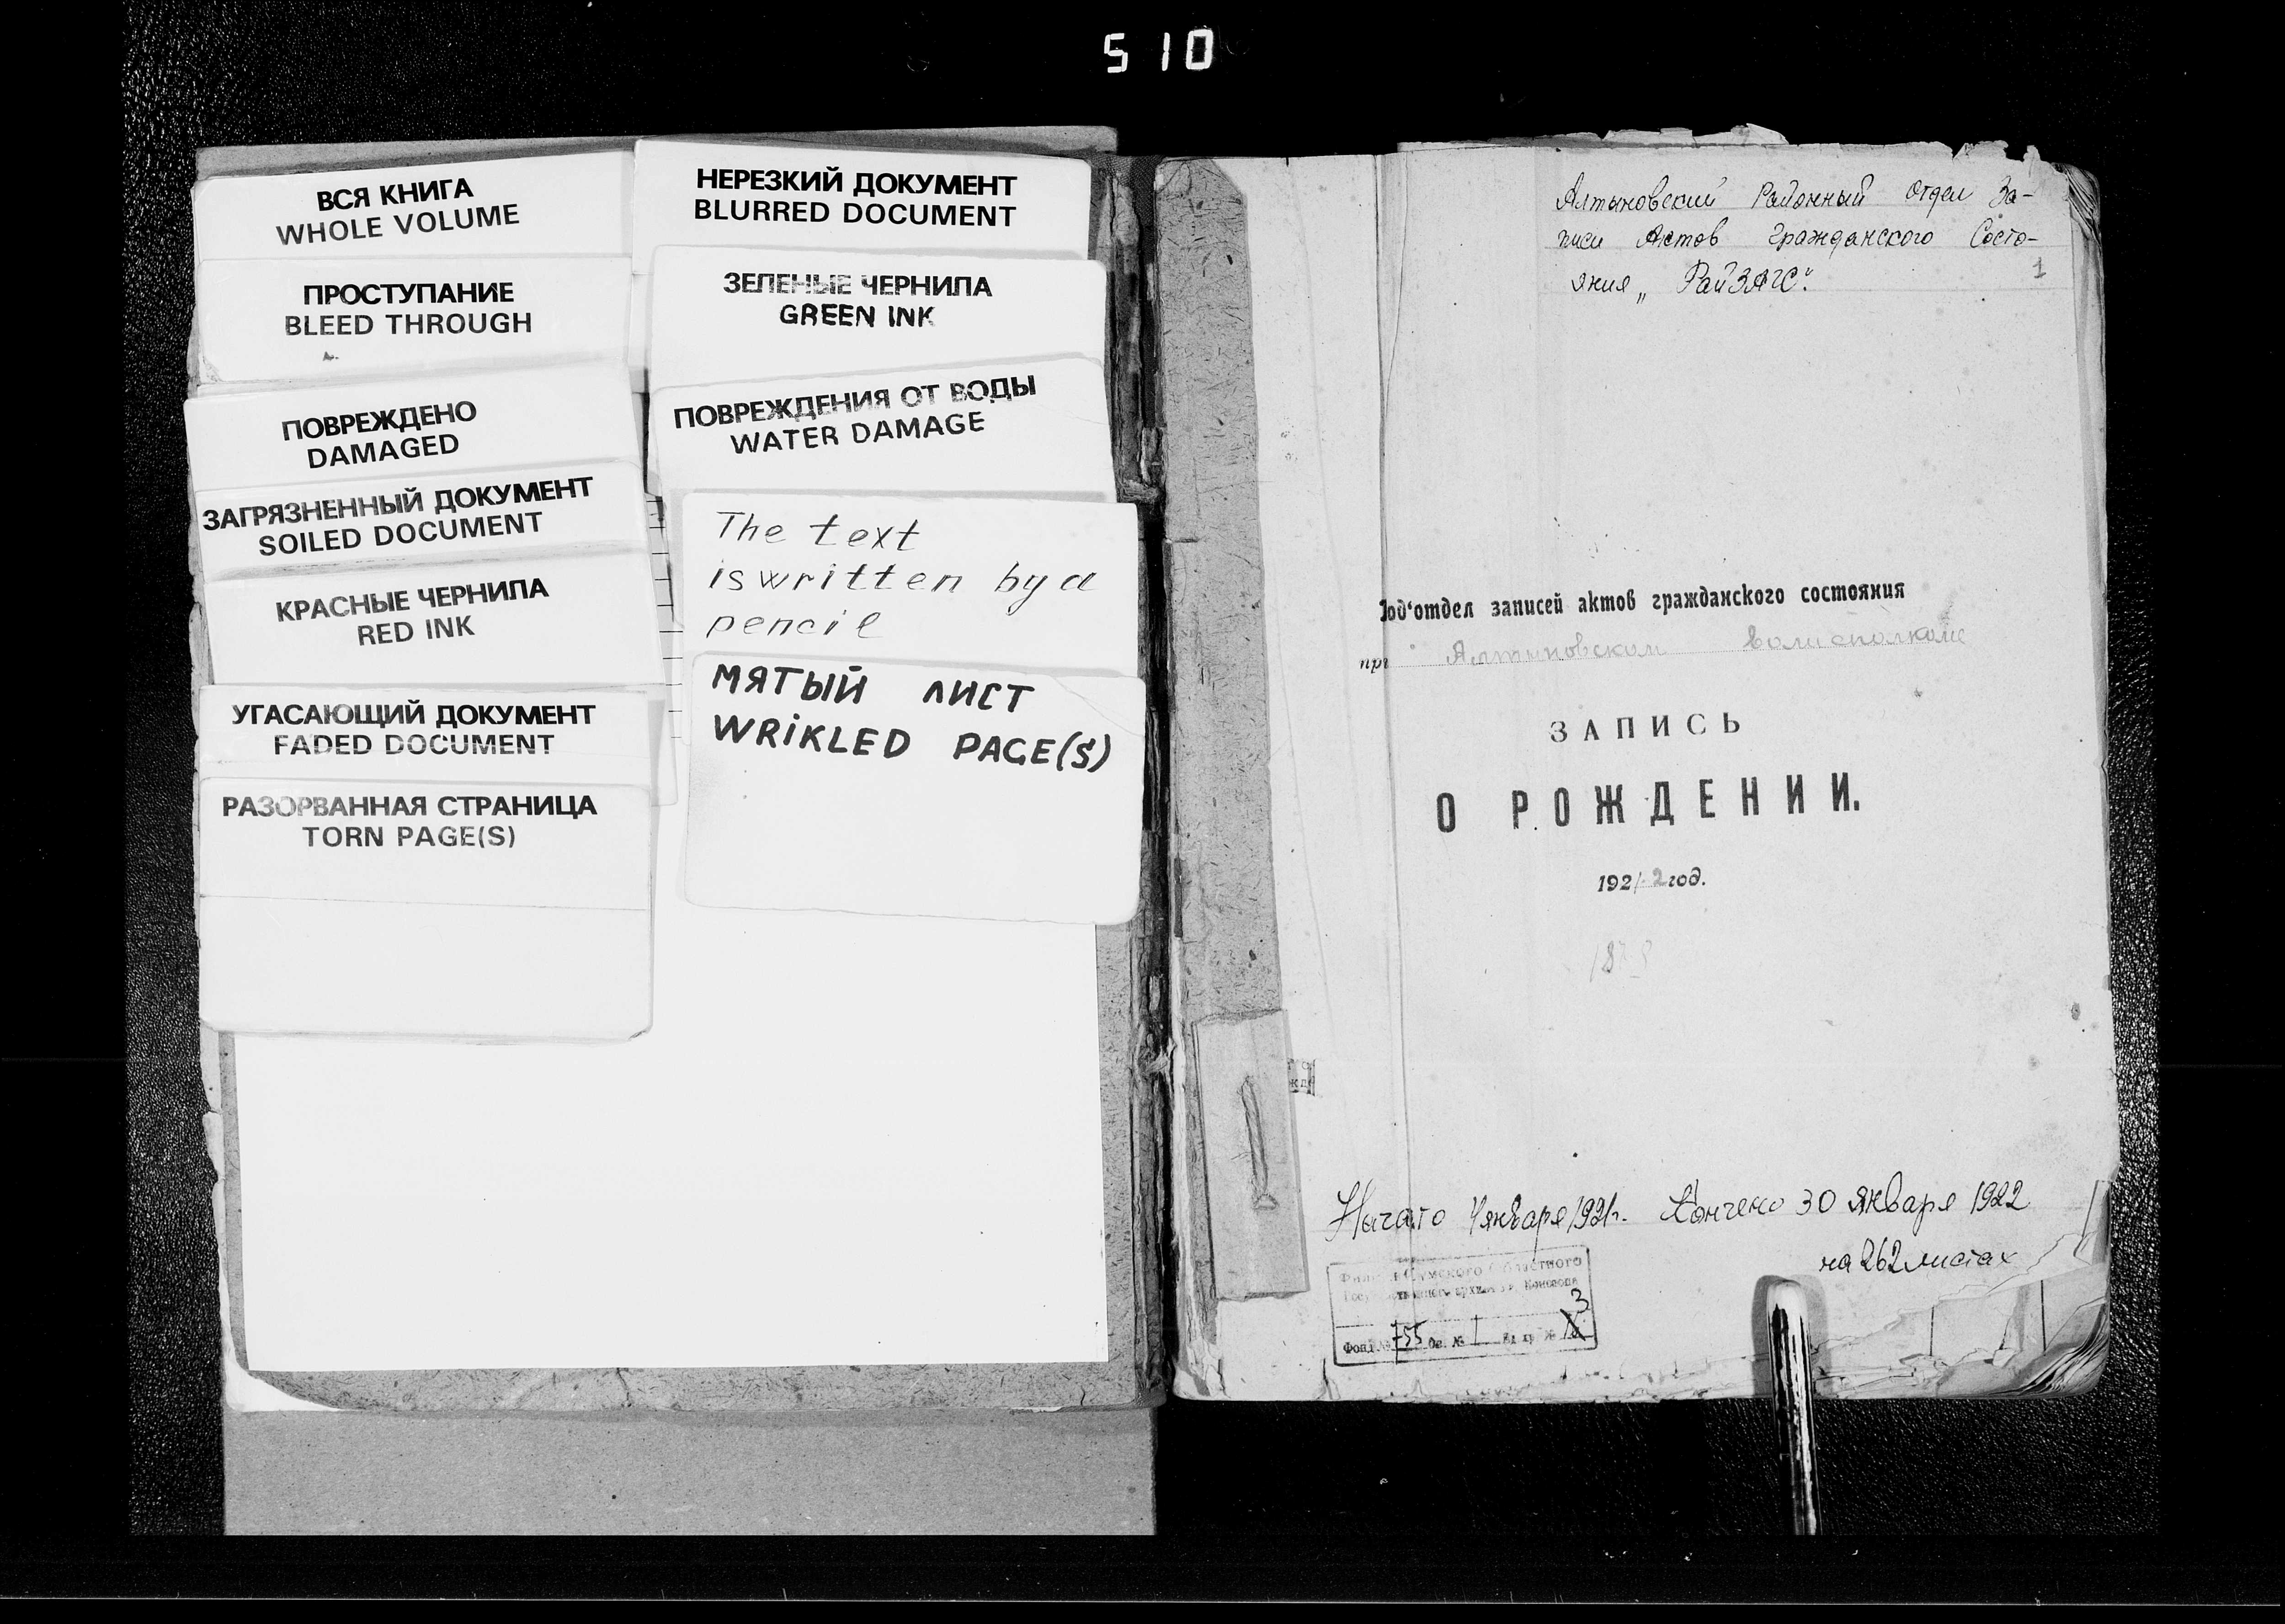 510
ВСЯ КНИГА
WHOLE VOLUME
ПРОСТУПАНИЕ
BLEED THROUGH
ПОВРЕЖДЕНО
DAMAGED
ЗАГРЯЗНЕННЫЙ ДОКУМЕНТ
SOILED DOCUMENT
КРАСНЫЕ ЧЕРНИЛА
RED INK
УГАСАЮЩИЙ ДОКУМЕНТ
FADED DOCUMENT
РАЗОРВАННАЯ СТРАНИЦА
TORN PAGE(S)
НЕРЕЗКИЙ ДОКУМЕНТ
BLURRED DOCUMENT
ЗЕЛЕНЫЕ ЧЕРНИЛА
GREEN INK
ПОВРЕЖДЕНИЯ ОТ ВОДЫ
WATER DAMAGE
The text
is written by a
pencil
МЯТЫЙ ЛИСТ
WRIKLED PAGE(S)
Алтыновский Районный Отдел За-
писи Актов Гражданского Состо-
яния „РайЗАГС".
1
Под'отдел записей актов гражданского состояния
при Алтыновском волисполкоме
ЗАПИСЬ
О РОЖДЕНИИ.
1921-2 год.
Начато 4 января 1921 г. Кончено 30 января 1922
на 262 листах
Филиал Сумского Областного
Государственного архива в г. Конотопе
3
Фонд № 755 Оп. № 1 Ед. хр. №